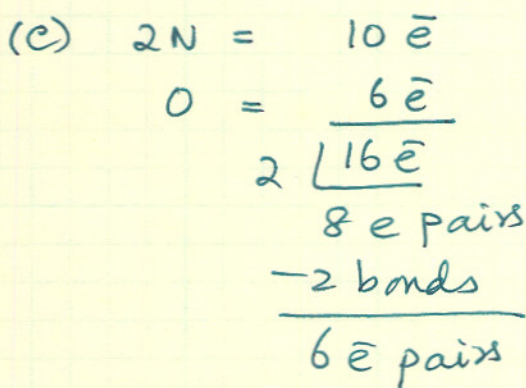 (c) 2N = 10 ē
O = 6 ē
2 16 ē
8 e pairs
-2 bonds
6 ē pairs